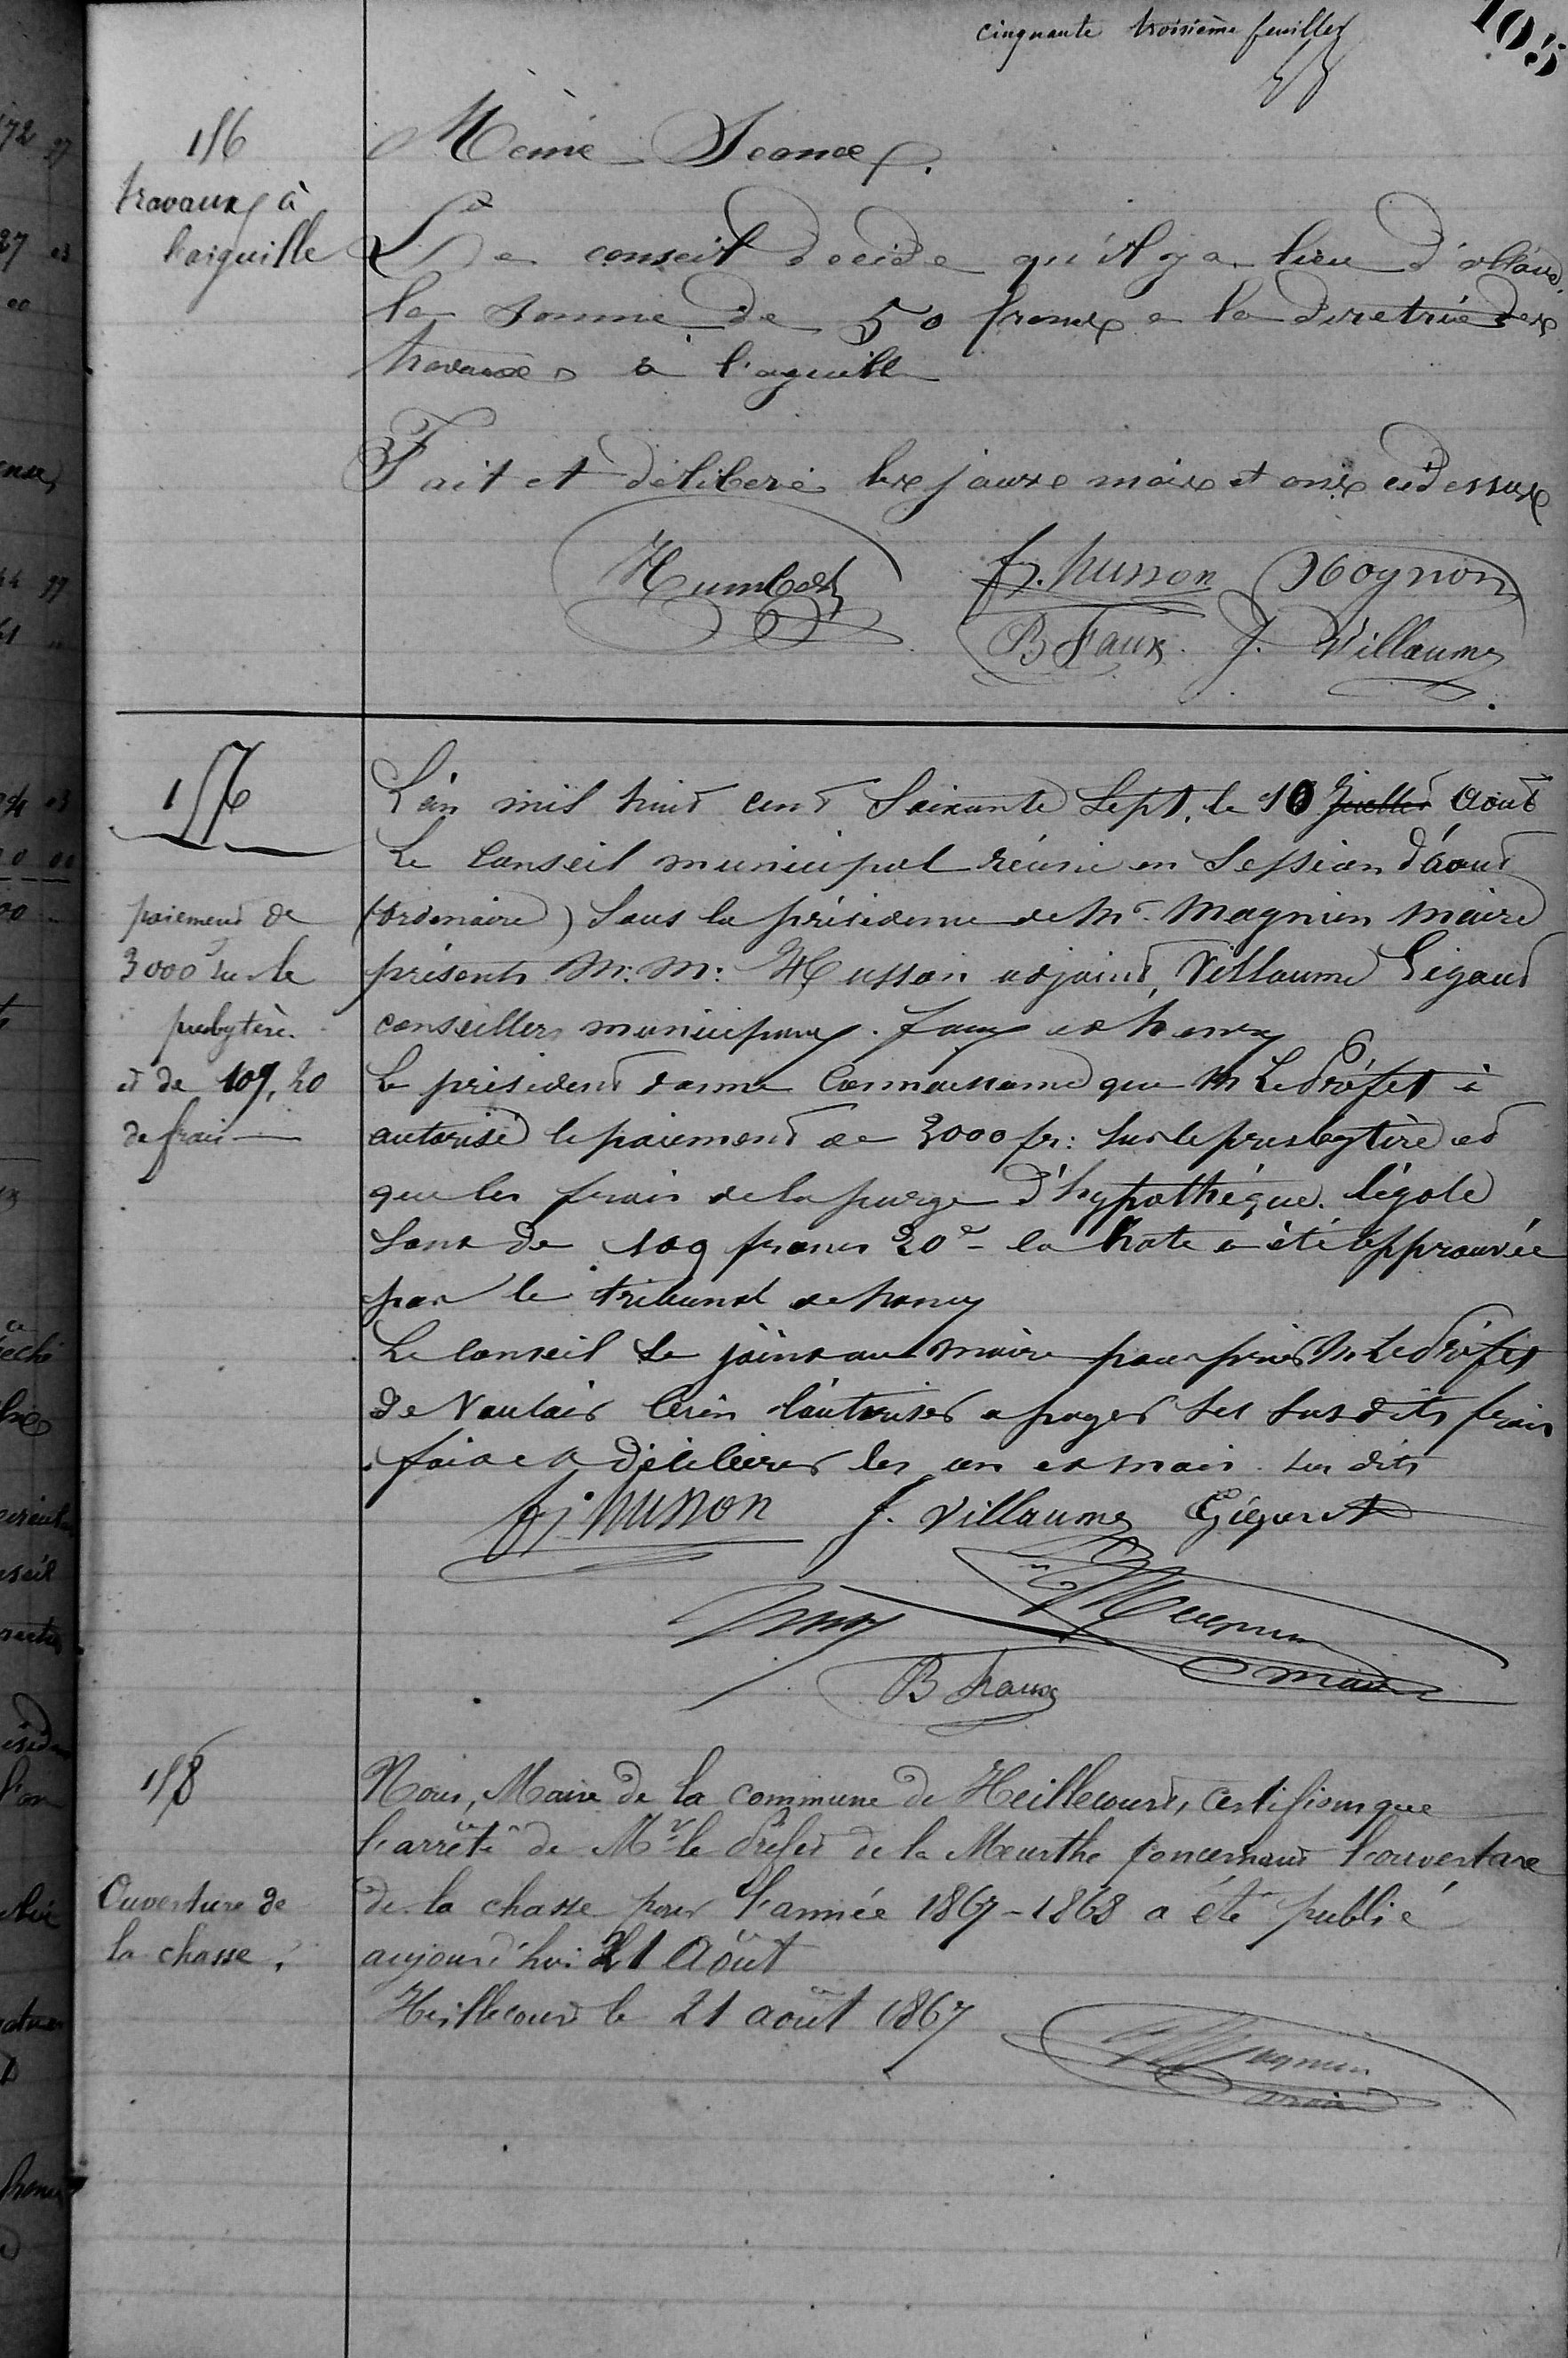 cinquante troisième feuillet
105
156
travaux à
l'aiguille
Même Séance.
Le conseil décide qu'il y a lieu d'alloué
la somme de 50 francs a la diretrice des
travaux à l'aguille
Fait et déliberé les jours mois et ans ci dessus
Humbert fr. husson Hognon
B Faux. J. Villaume
157
paiement de
3000 f sur le
presbytère
et de 109,20
de frais
L'an mil huit cent Soixante Sept, le 10 Juillet Août
Le Conseil municipal réuni en Session d'aout
(ordinaire) Sous la présidence de Mr. Magnien Maire
présents M.M: Husson adjoint, Villaume Gigout
conseillers municipaux. faux et henry
Le président donne Connaissance que M Le Préfet à
autorisé le paiement de 3000 fr: sur le presbytère et
que les frais de la purge d'hypothéque légale
sont de 109 francs 20c - la Note a été approuvée
par le tribunal de nancy
Le Conseil se joint au maire pour prier M. Le Préfet
de Vouloir bien l'autoriser a payer les susdits frais
fait et délibérer les an et mois susdits
fr. husson J. Villaume Gigout
Magnien
maire
B Faux
158
Ouverture de
la chasse.
Nous, Maire de la commune de Heillecourt, certifions que
l'arrêté de Mr le Préfet de la Meurthe concernant l'ouverture
de la chasse pour l'année 1867-1868 a été publié
aujourd'hui 21 Août
Heillecourt le 21 août 1867
Magnien
maire